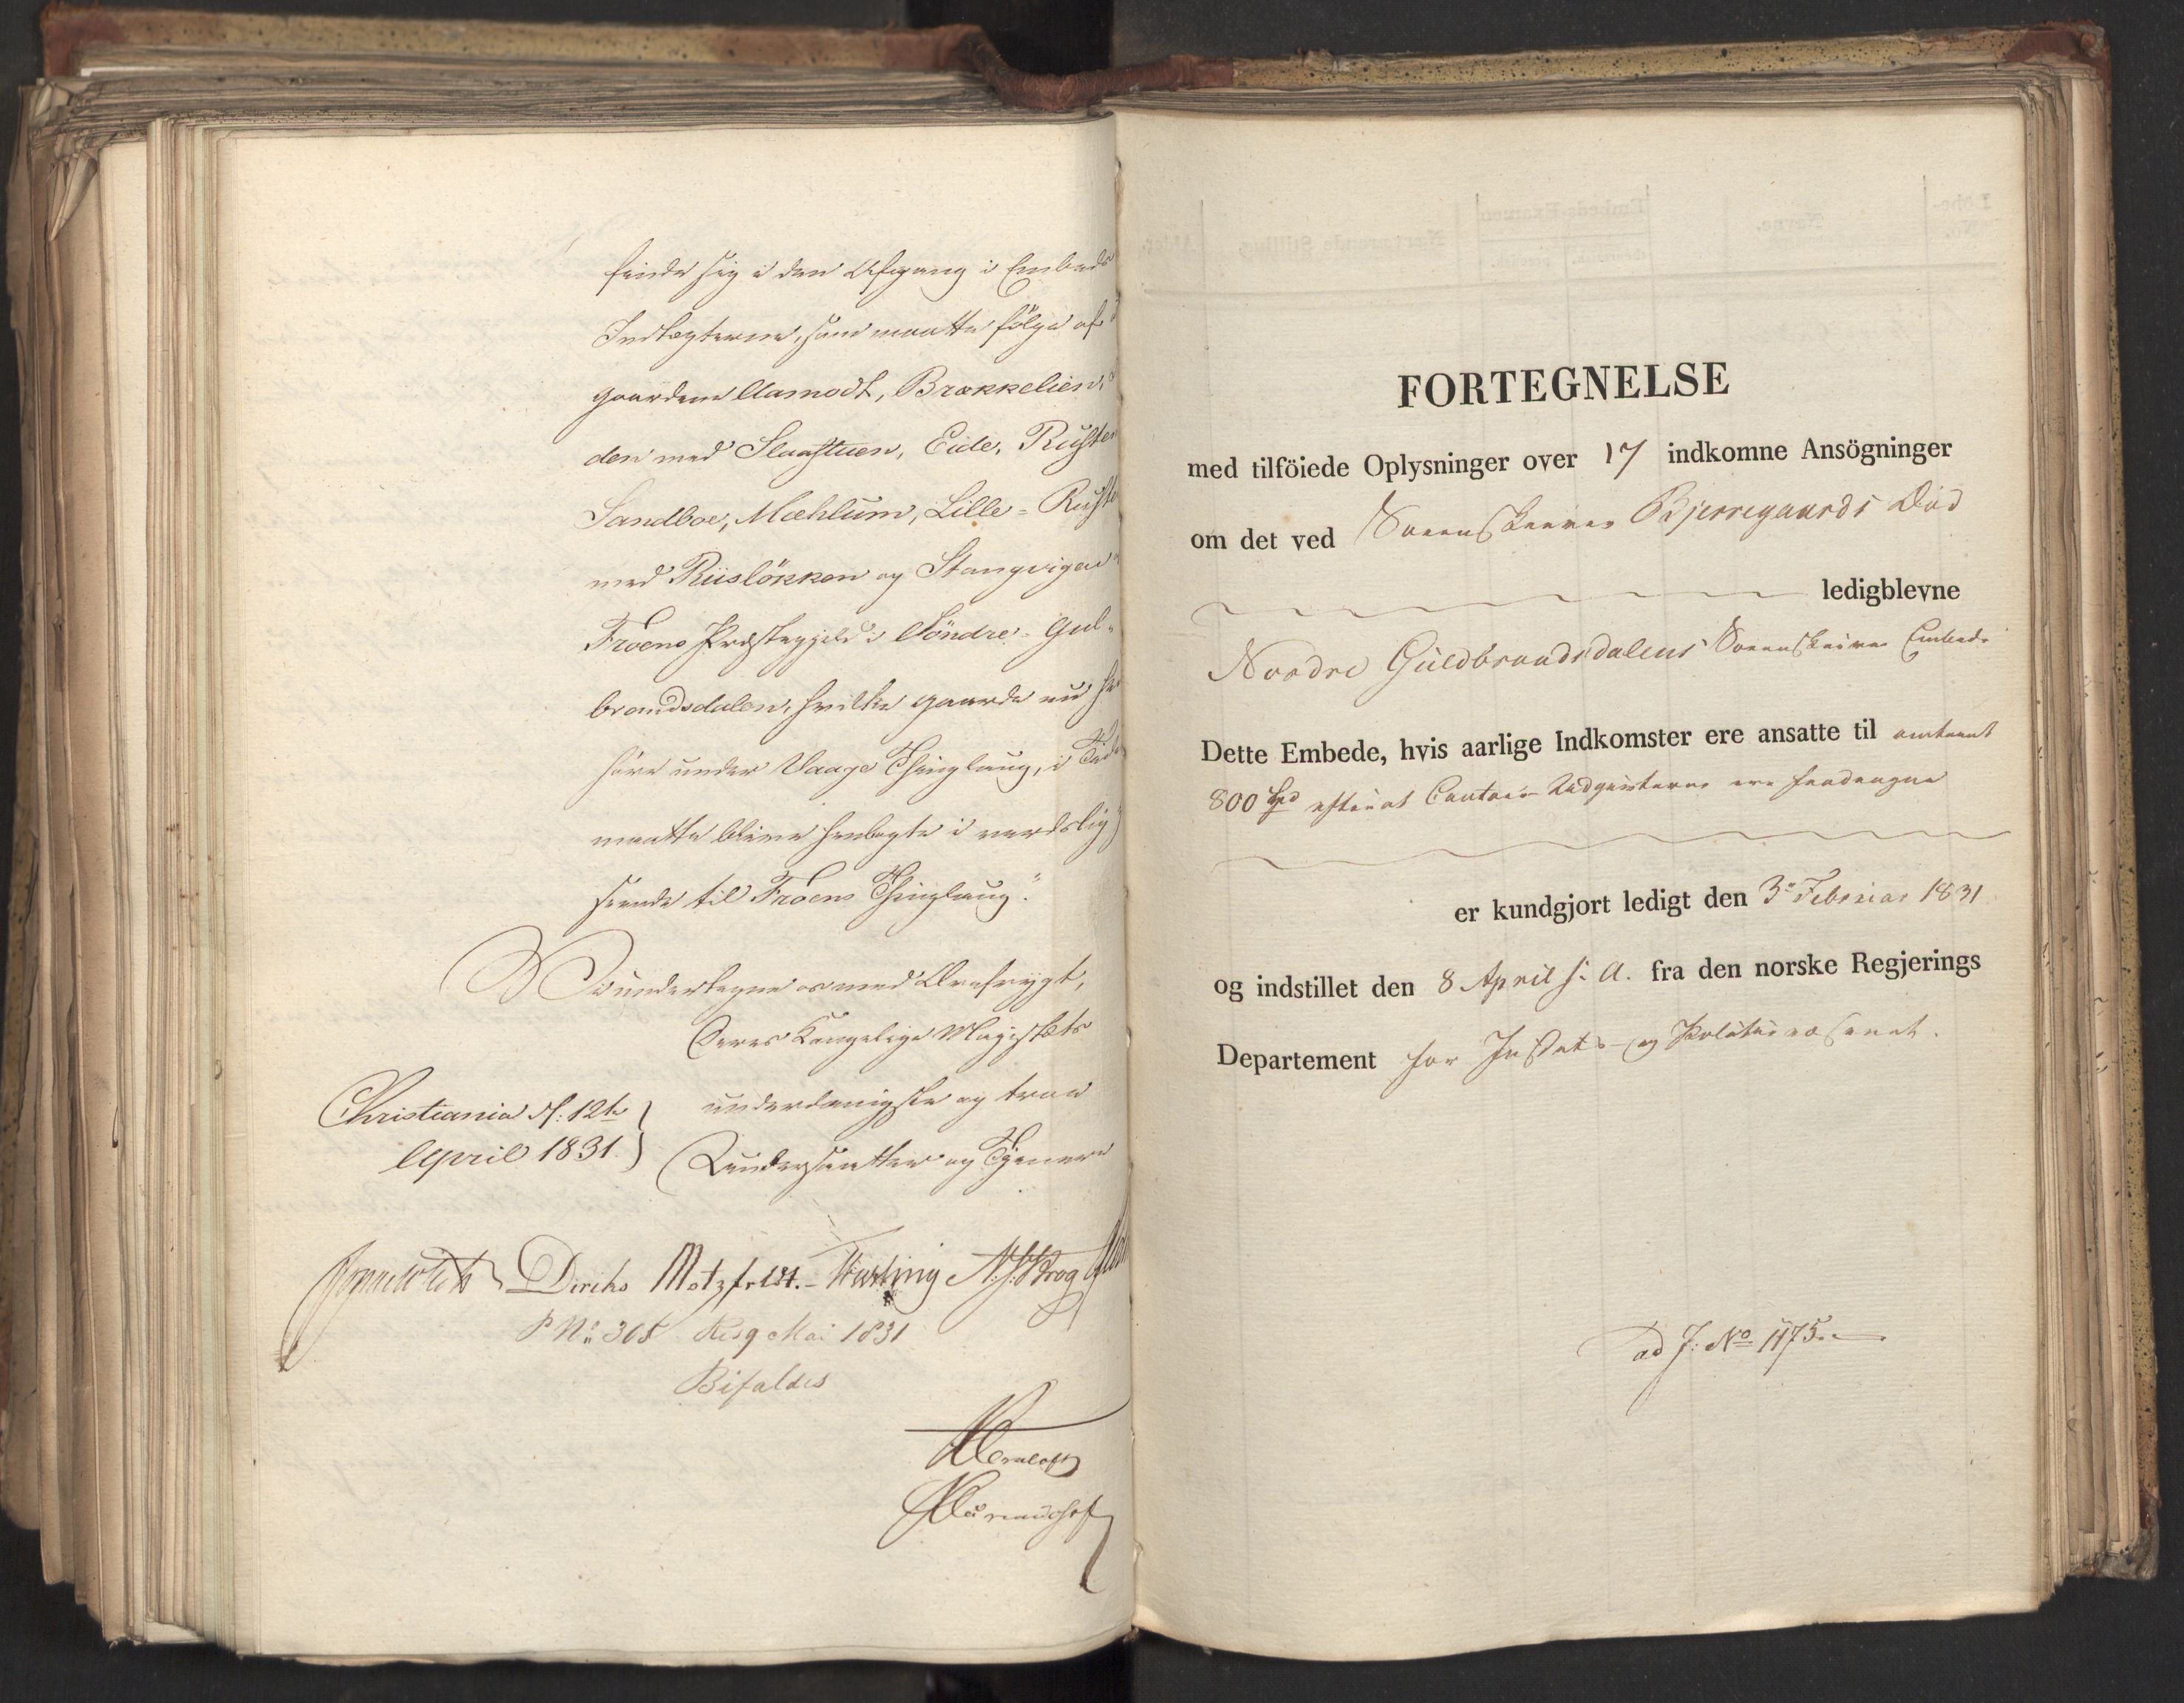 finde sig i den Afgang i Embeds
Indtægterne, som maatte fölge af
gaardene Aamodt, Brækkelien,
den med Slaastuen, Eide, Rusten
Sandboe, Mæhlum, Lille-Rusten
med Riislökken og Stangvigen
Froens Præstegjeld i Söndre-Gul-
brandsdalen, hvilke gaarde nu
höre under Vaage Thinglaug, i Tiden
maatte blive henlagte i verdslig
seende til Froens Thinglaug."
Vi undertegne os med Ærefrygt,
Deres Kongelige Majestæts
Christiania d. 12te underdanigste og troe
April 1831. Undersaatter og Tjenere
Diriks Motzfeldt. N. J. Krog
P No 365 Res 9 Mai 1831
Bifaldes
FORTEGNELSE
med tilföiede Oplysninger over 17 indkomne Ansögninger
om det ved Sorenskriver Bjerregaards Död
ledigblevne
Nordre Guldbrandsdalens Sorenskriver Embede
Dette Embede, hvis aarlige Indkomster ere ansatte til omtrent
800 Spd efterat Contoir Udgivterne ere fradragne
er kundgjort ledigt den 3 Februar 1831
og indstillet den 8 April s. A. fra den norske Regjerings
Departement for Justits- og Politievæsenet.
ad J. No 1175.